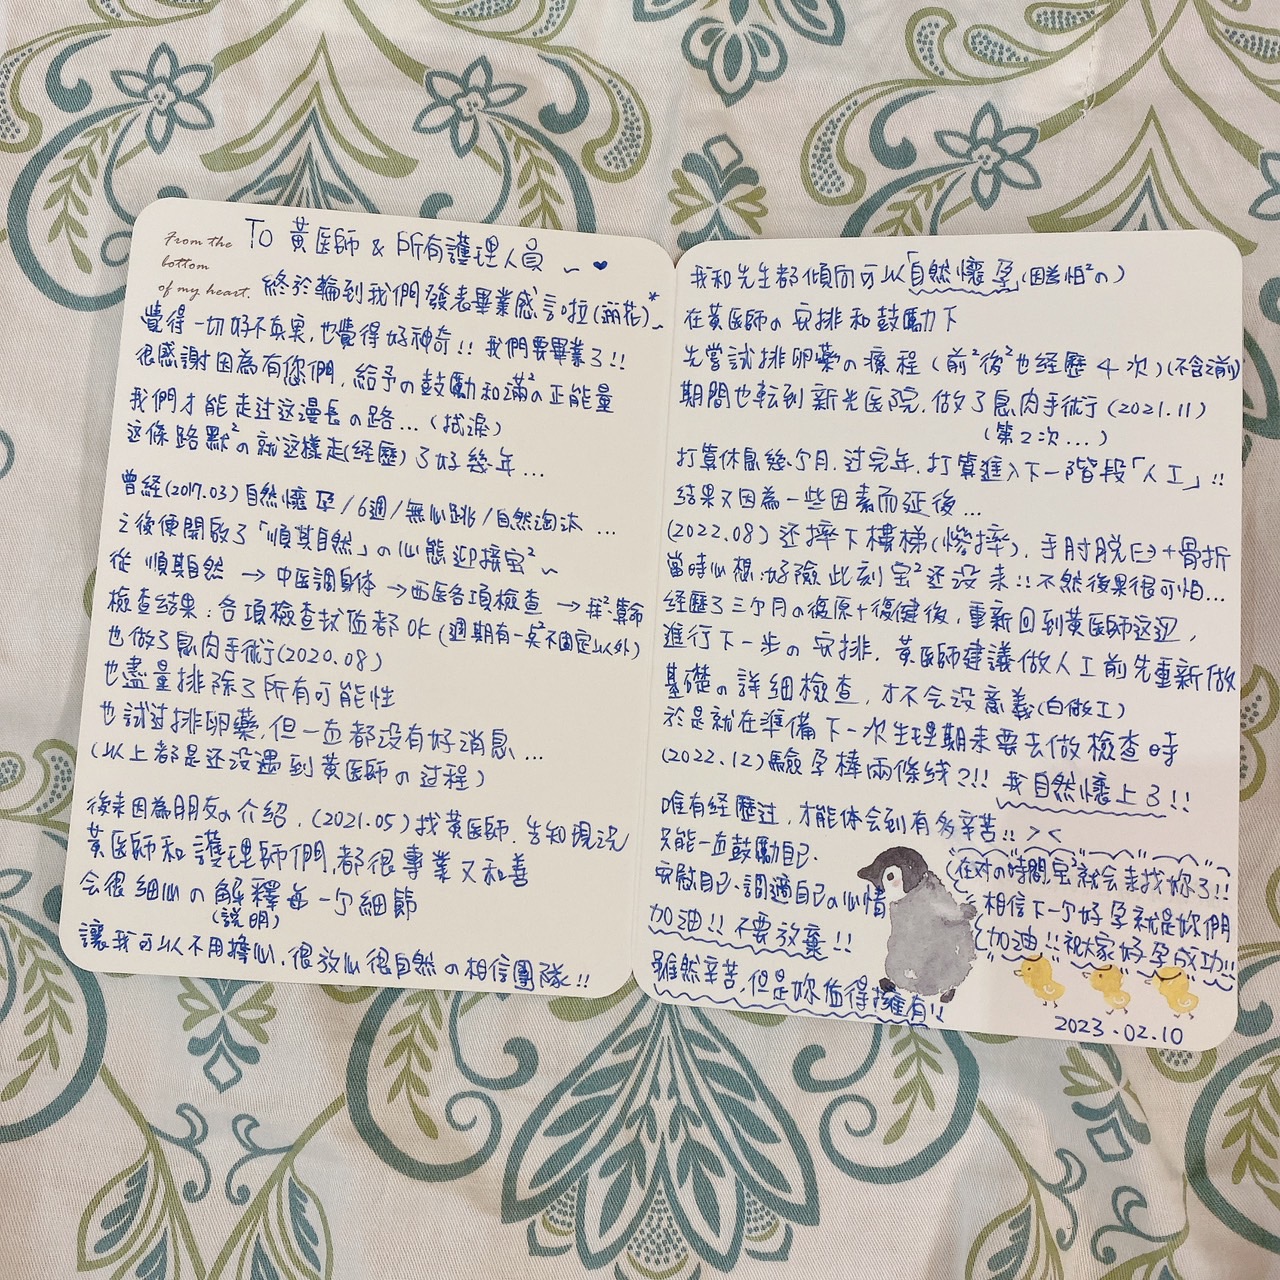 From the
bottom
of my heart.
To 黃医師 & 所有護理人員 ~ ♥
終於輪到我們發表畢業感言啦(灑花)*~
覺得一切好不真実,也覺得好神奇!! 我們要畢業了!!
很感謝因為有您們,給予の鼓勵和滿²の正能量
我們才能走过这漫長の路...(拭淚)
这條路默²の就这樣走(経歷)了好幾年...
曾経(2017.03)自然懷孕/6週/無心跳/自然淘汰...
之後便開啟了「順其自然」の心態迎接宝²~
從 順其自然 → 中医調身体 → 西医各項檢查 → 拜²算命
檢查結果:各項檢查数值都OK(週期有一點²不固定以外)
也做了息肉手術(2020.08)
也盡量排除了所有可能性
也試过排卵藥,但一直都没有好消息...
(以上都是还没遇到黃医師の过程)
後来因為朋友の介紹,(2021.05)找黃医師,告知現況
黃医師和護理師們,都很專業又和善
会很細心の解釋每一个細節
(說明)
讓我可以不用擔心,很放心很自然の相信團隊!!
我和先生都傾向可以「自然懷孕」(因為怕²の)
在黃医師の安排和鼓勵下
先嘗試排卵藥の療程(前²後²也経歷4次)(不含之前)
期間也転到新光医院,做了息肉手術(2021.11)
(第2次...)
打算休息幾个月,过完年,打算進入下一階段「人工」!!
結果又因為一些因素而延後...
(2022.08)还摔下樓梯(慘摔),手肘脱臼+骨折
當時心想:好險此刻宝²还没来!!不然後果很可怕...
経歷了三个月の復原+復健後,重新回到黃医師这边,
進行下一步の安排,黃医師建議做人工前先重新做
基礎の詳細檢查,才不会没意義(白做工)
於是就在準備下一次生理期来要去做檢查時
(2022.12)驗孕棒兩條线?!! 我自然懷上了!!
唯有経歷过,才能体会到有多辛苦!! ><
只能一直鼓勵自己、
安慰自己、調適自己の心情
加油!!不要放棄!!
雖然辛苦,但是妳值得擁有!!
在对の時間,宝²就会来找妳了!!
相信下一个好孕就是妳們
加油!!祝大家好孕成功!!
2023.02.10